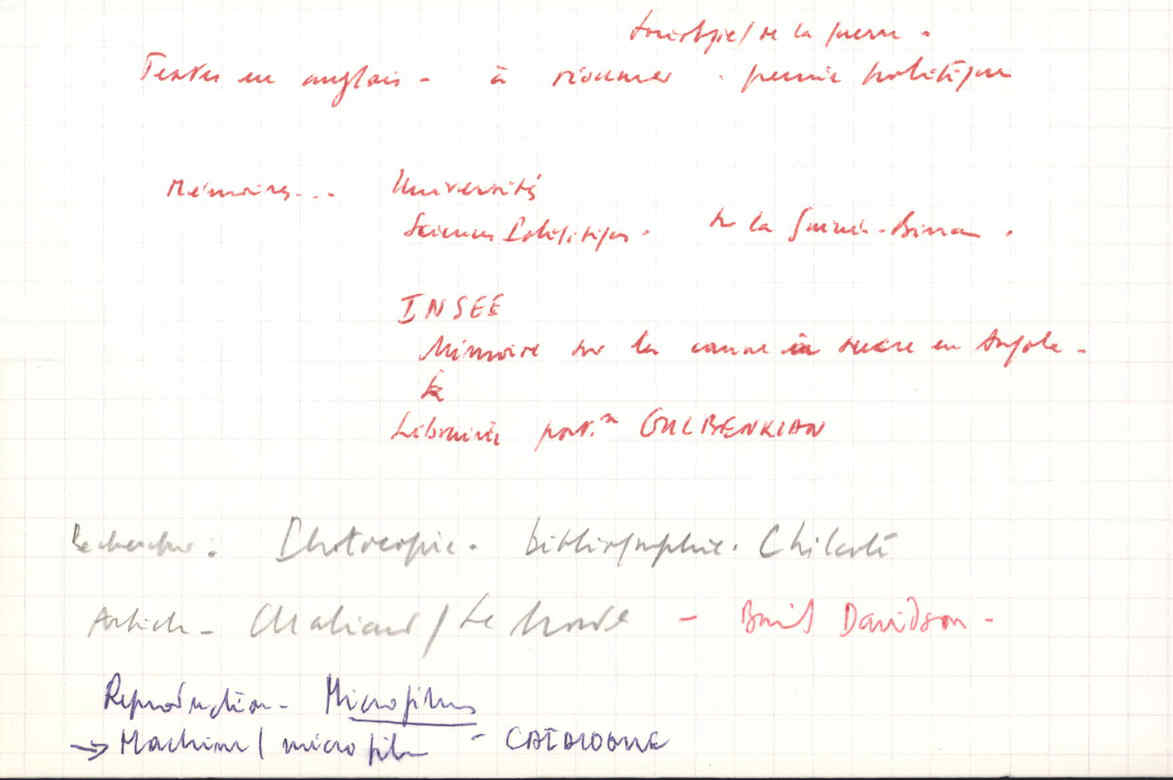 de la guerre.
Textes en anglais - à résumer . pensée politique
Mémoires... Université
Sciences Politiques. sur la Guinée-Bissau.
INSEE
Mémoire sur la canne à sucre en Angola -
Librairie GULBENKIAN
Recherche : Photocopie. bibliographie. Chilcote
Article - Chaliand / Le Monde - Basil Davidson -
Reproduction - Microfilms
→ Machine / microfilm - CATALOGUE